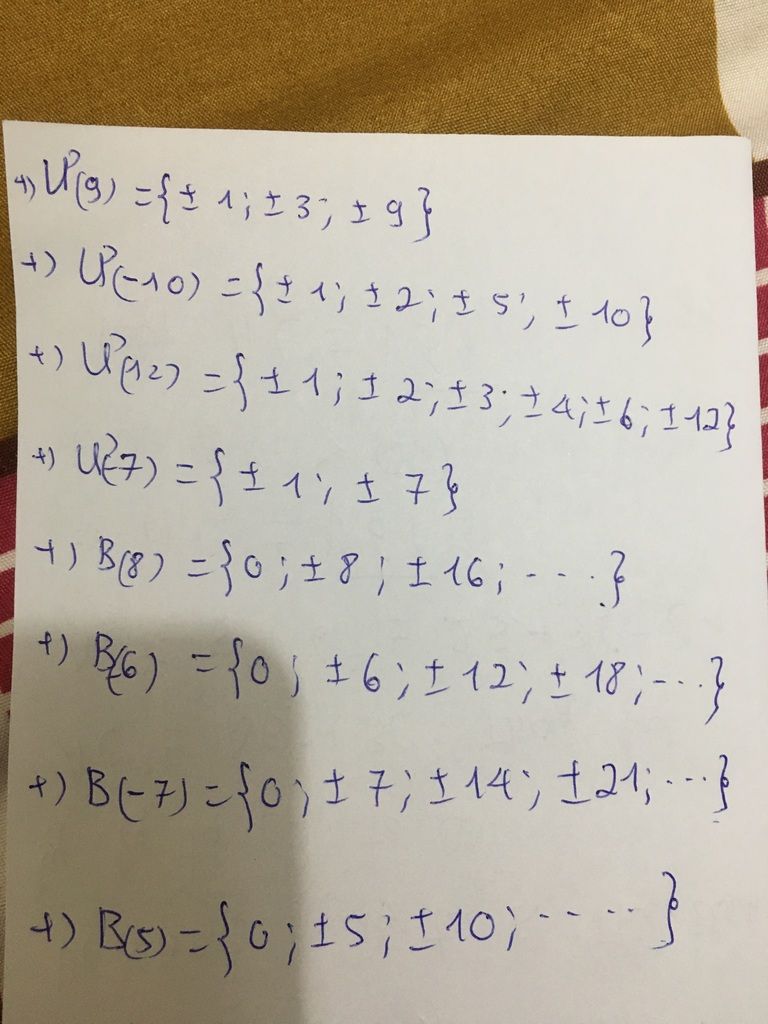 +) Ư(9) = {± 1; ± 3; ± 9}
+) Ư(-10) = {± 1; ± 2; ± 5; ± 10}
+) Ư(12) = {± 1; ± 2; ± 3; ± 4; ± 6; ± 12}
+) Ư(-7) = {± 1; ± 7}
+) B(8) = {0; ± 8; ± 16; ....}
+) B(6) = {0; ± 6; ± 12; ± 18; ...}
+) B(-7) = {0; ± 7; ± 14; ± 21; ...}
+) B(5) = {0; ± 5; ± 10; ....}